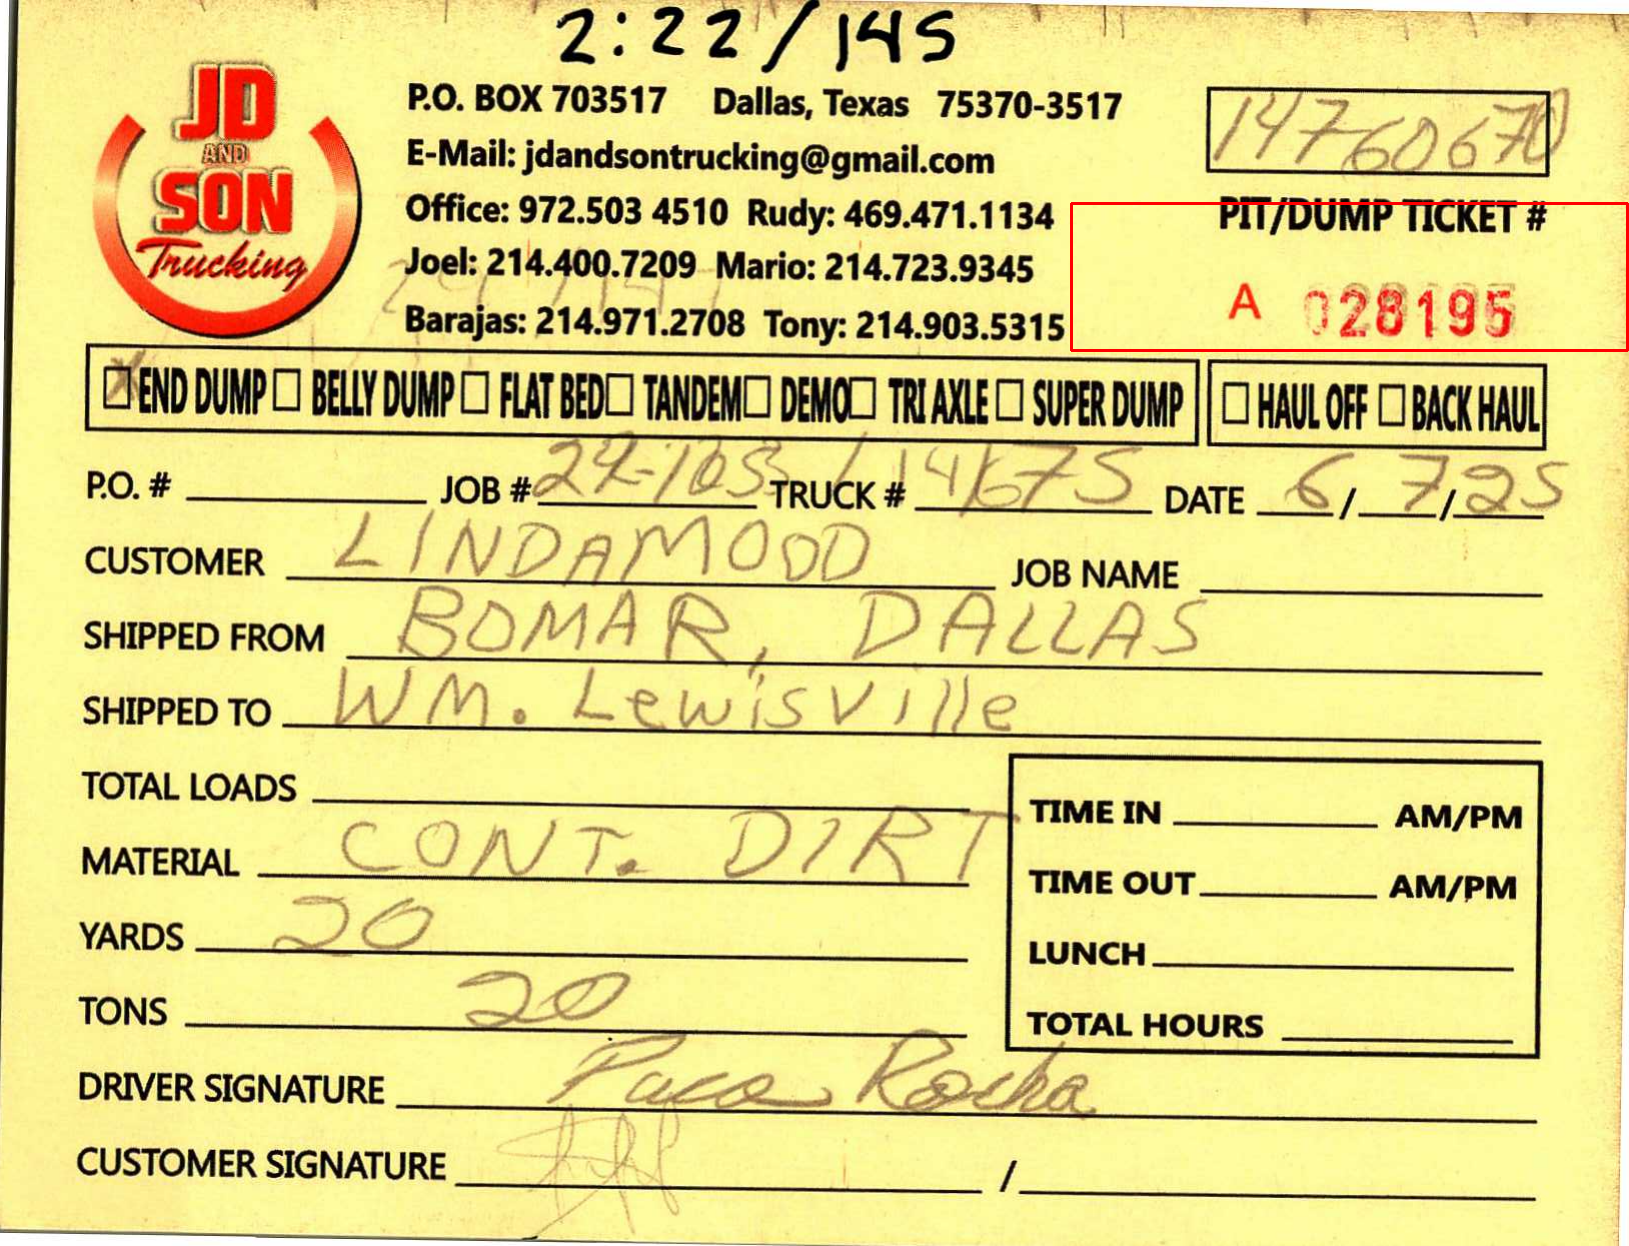 2:22/145
JD
AND
SON
Trucking
P.O. BOX 703517 Dallas, Texas 75370-3517
E-Mail: jdandsontrucking@gmail.com
Office: 972.503 4510 Rudy: 469.471.1134
Joel: 214.400.7209 Mario: 214.723.9345
Barajas: 214.971.2708 Tony: 214.903.5315
14760670
PIT/DUMP TICKET #
A 028195
END DUMP BELLY DUMP FLAT BED TANDEM DEMO TRI AXLE SUPER DUMP HAUL OFF BACK HAUL
P.O. # JOB # 24-103 TRUCK # 14675 DATE 6/7/25
CUSTOMER LINDAMOOD JOB NAME
SHIPPED FROM BOMAR, DALLAS
SHIPPED TO WM. Lewisville
TOTAL LOADS
MATERIAL CONT. DIRT
YARDS 20
TONS 20
TIME IN AM/PM
TIME OUT AM/PM
LUNCH
TOTAL HOURS
DRIVER SIGNATURE Paco Rocha
CUSTOMER SIGNATURE /